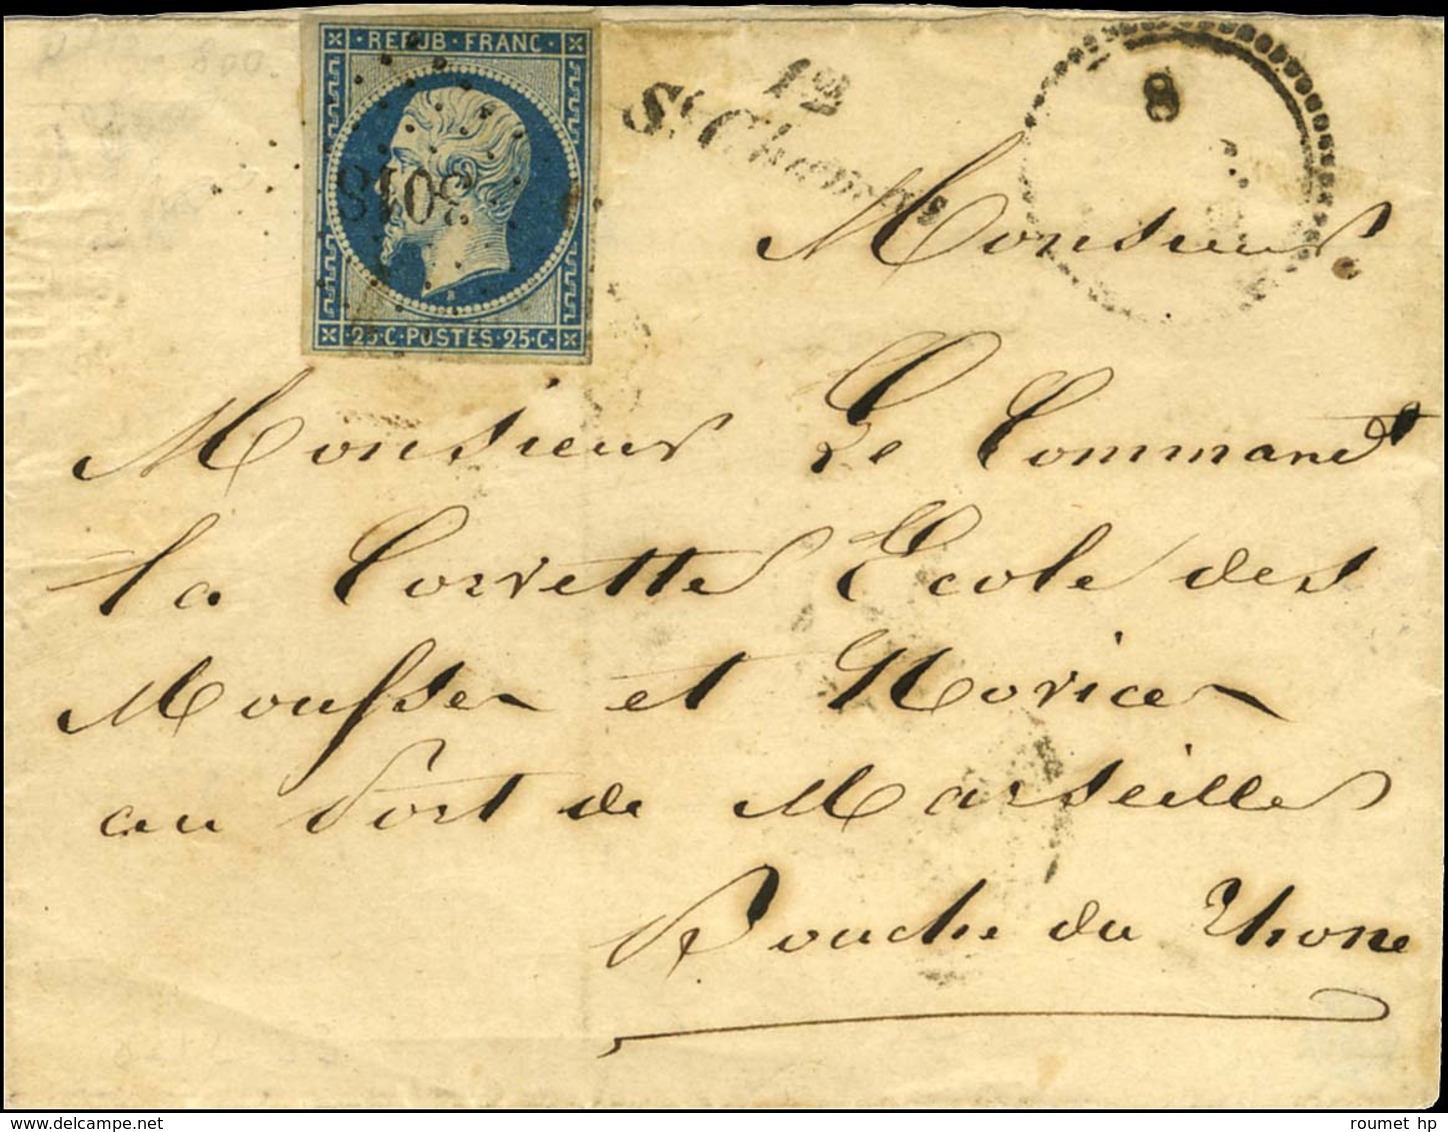 REPUB · FRANC ·
3018
· 25 · C · POSTES · 25 · C ·
12
St Chamas
8
Monsieur
Monsieur Le Command
la Corvette Ecole des
Mousses et Novices
au Port de Marseille
Bouche du Rhone
800.
roumet hp